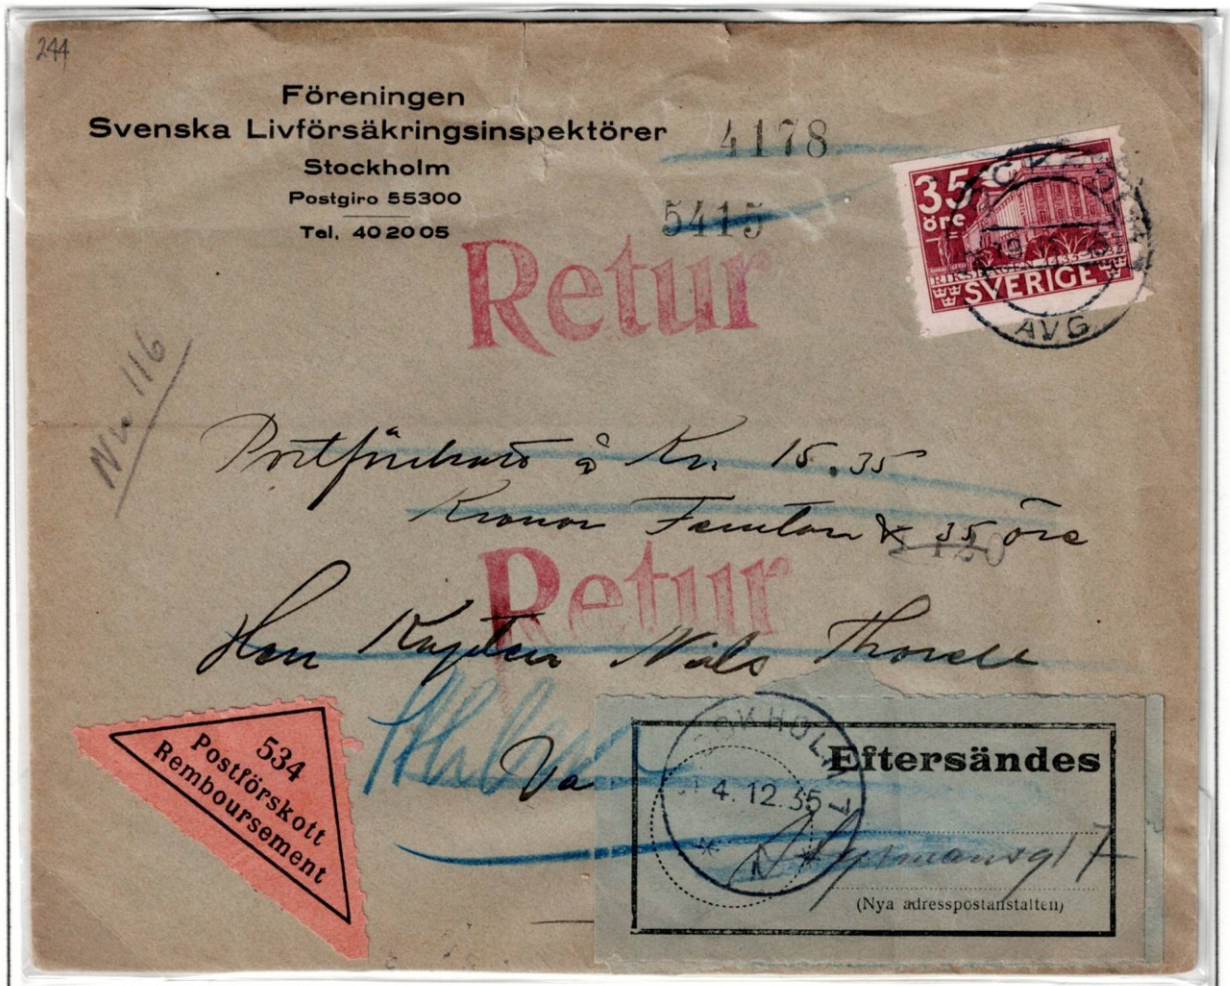 244
Föreningen
Svenska Livförsäkringsinspektörer
Stockholm
Postgiro 55300
Tel. 40 20 05
4178
5415
35
öre
RIKSDAGEN 1435-1935
SVERIGE
AVG
Retur
116
Postförskott à Kr. 15.35
Kronor Femton & 35 öre
Retur
Herr Kapten Nils Thorell
Va
534
Postförskott
Remboursement
Eftersändes
STOCKHOLM 1
4.12.35
17
(Nya adresspostanstalten)